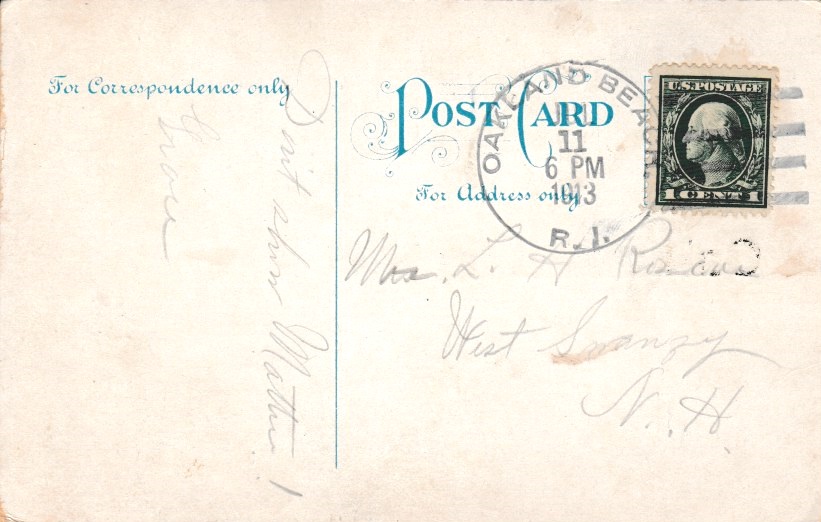 For Correspondence only
Don't show Mattie!
Grace
POST CARD
For Address only
OAKLAND BEACH
11
6 PM
1913
R.I.
U.S. POSTAGE
1 CENT 1
Mrs. L. H.
West Swanzy
N. H.